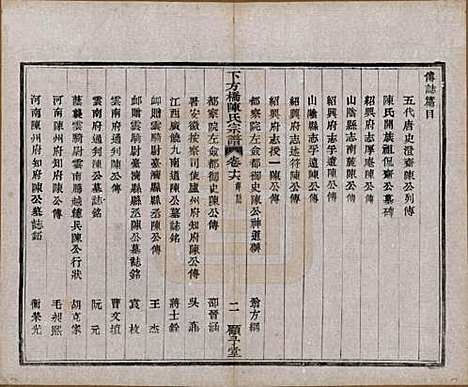 傳誌篇目
五代唐史澄齋陳公列傳
陳氏開族祖侃齋公墓碑
紹興府志厚庵陳公傳
山陰縣志南麓陳公傳
山陰縣志學遠陳公傳
紹興府志達符陳公傳
紹興府志授一陳公傳
都察院左僉都御史陳公神道碑 翁方綱
下方橋陳氏宗譜 卷十六 二 顧予堂
都察院左僉都御史陳公傳 邵晉涵
署安徽按察司使廬州府知府陳公傳 吳鼒
江西廣饒九南道陳公墓誌銘 蔣士銓
雲南騰越尉臺灣縣縣丞陳公傳 王杰
臺灣縣縣丞陳公墓誌銘 袁枚
雲南府通判陳公傳 曹文埴
雲南府通判陳公墓誌銘 阮元
蔭襲雲南鶴麗總兵陳公行狀 胡克家
河南陳州府知府陳公傳 毛昶熙
河南陳州府知府陳公墓誌銘 衞榮光